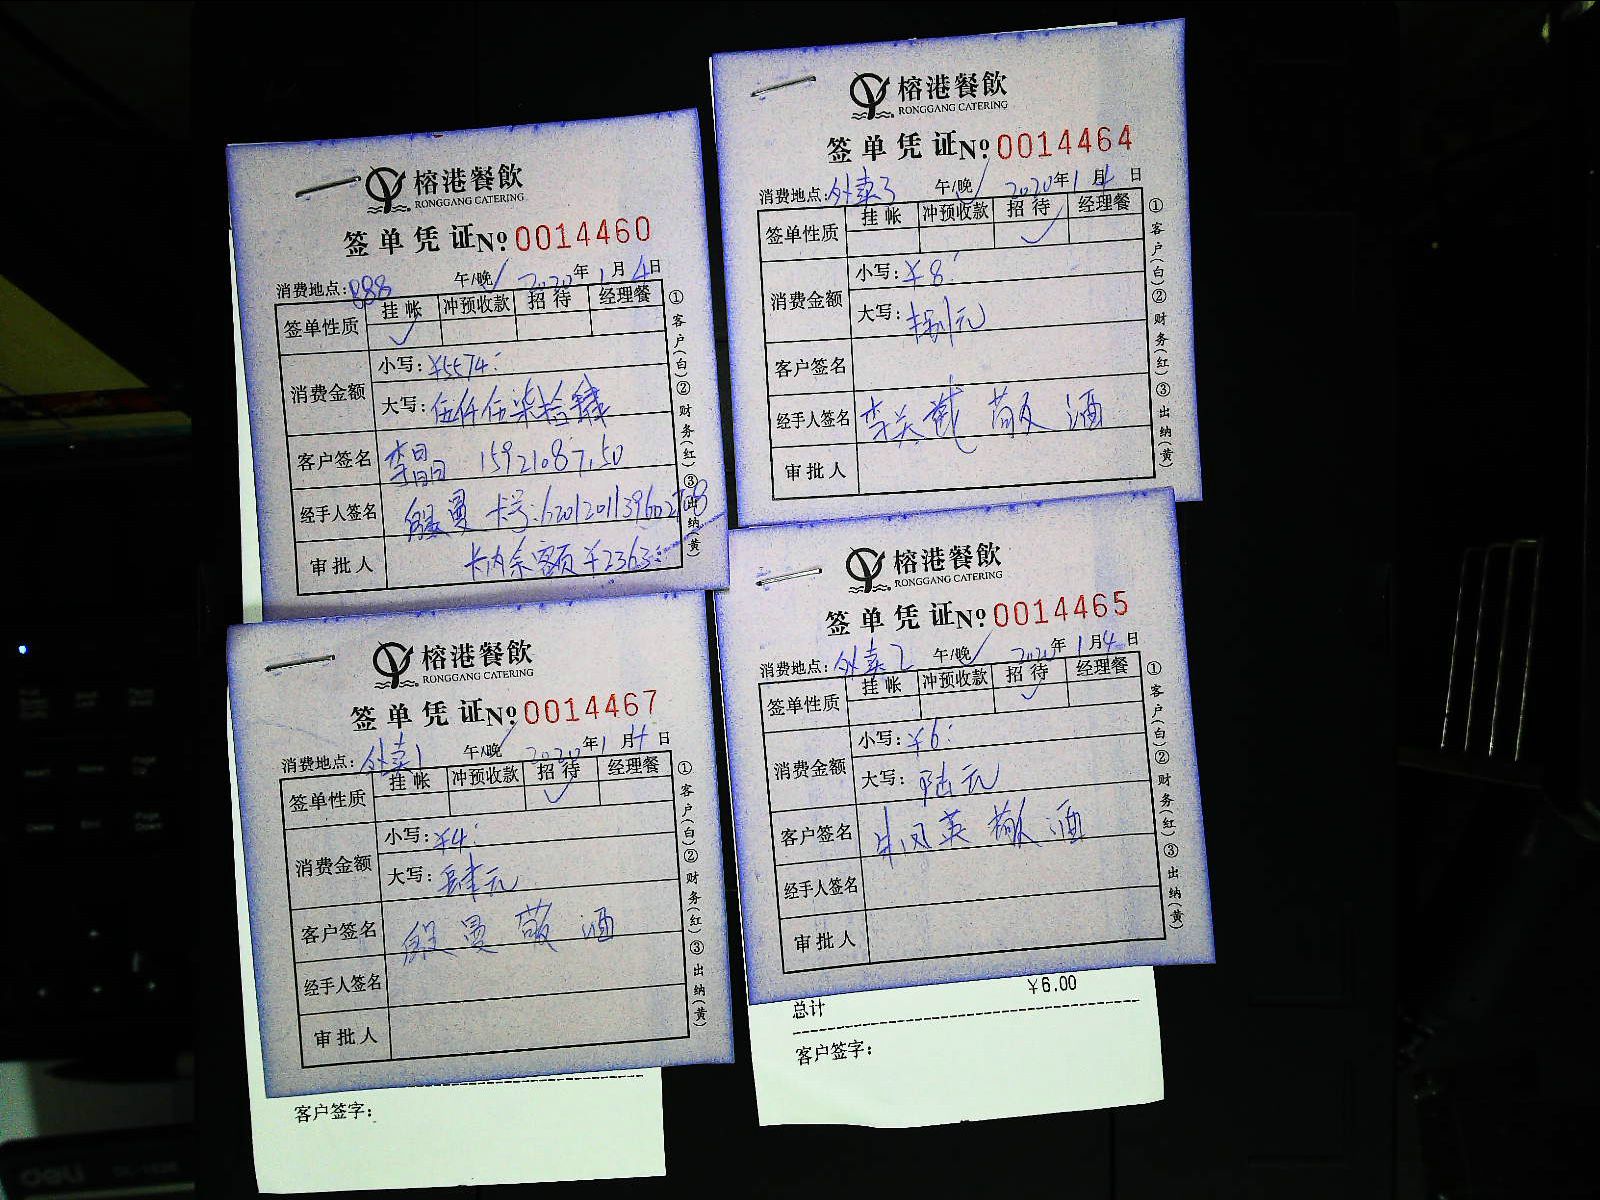 榕港餐飲
RONGGANG CATERING
签单凭证№0014460
消费地点:888 午/晚✓ 2020年1月4日
签单性质 挂帐 冲预收款 招待 经理餐
✓
消费金额 小写:¥5574:
大写:伍仟伍柒拾肆
客户签名 李晶
经手人签名 殷曼 卡号:
审批人 卡内余额¥2363:
①客户(白)②财务(红)③出纳(黄)
榕港餐飲
RONGGANG CATERING
签单凭证№0014464
消费地点:外卖3 午/晚✓ 2020年1月4日
签单性质 挂帐 冲预收款 招待 经理餐
✓
消费金额 小写:¥8:
大写:捌元
客户签名
经手人签名 敬酒
审批人
①客户(白)②财务(红)③出纳(黄)
榕港餐飲
RONGGANG CATERING
签单凭证№0014467
消费地点:外卖1 午/晚✓ 2020年1月4日
签单性质 挂帐 冲预收款 招待 经理餐
✓
消费金额 小写:¥4:
大写:肆元
客户签名 殷曼敬酒
经手人签名
审批人
①客户(白)②财务(红)③出纳(黄)
客户签字:
榕港餐飲
RONGGANG CATERING
签单凭证№0014465
消费地点:外卖2 午/晚✓ 2020年1月4日
签单性质 挂帐 冲预收款 招待 经理餐
✓
消费金额 小写:¥6:
大写:陆元
客户签名 朱凤英敬酒
经手人签名
审批人
①客户(白)②财务(红)③出纳(黄)
¥6.00
总计
客户签字:
deli